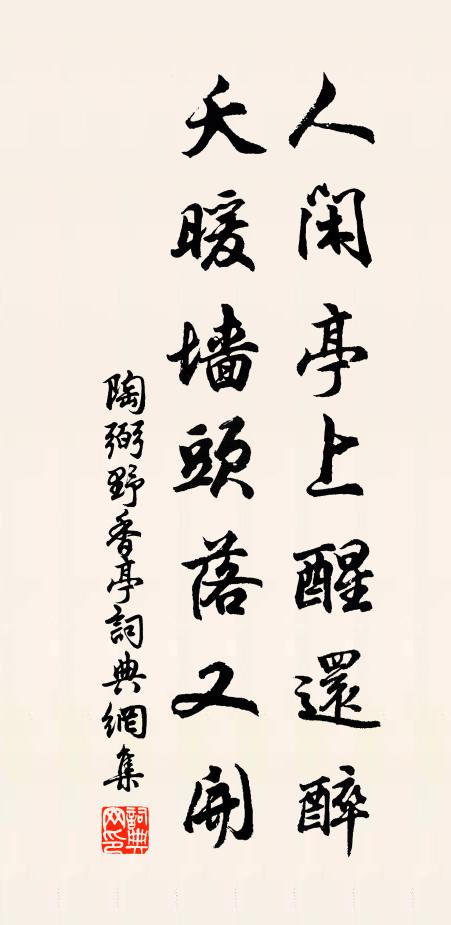 人閑亭上醒還醉
天暖墻頭落又開
陶弼野香亭詞典網集
詞典網印